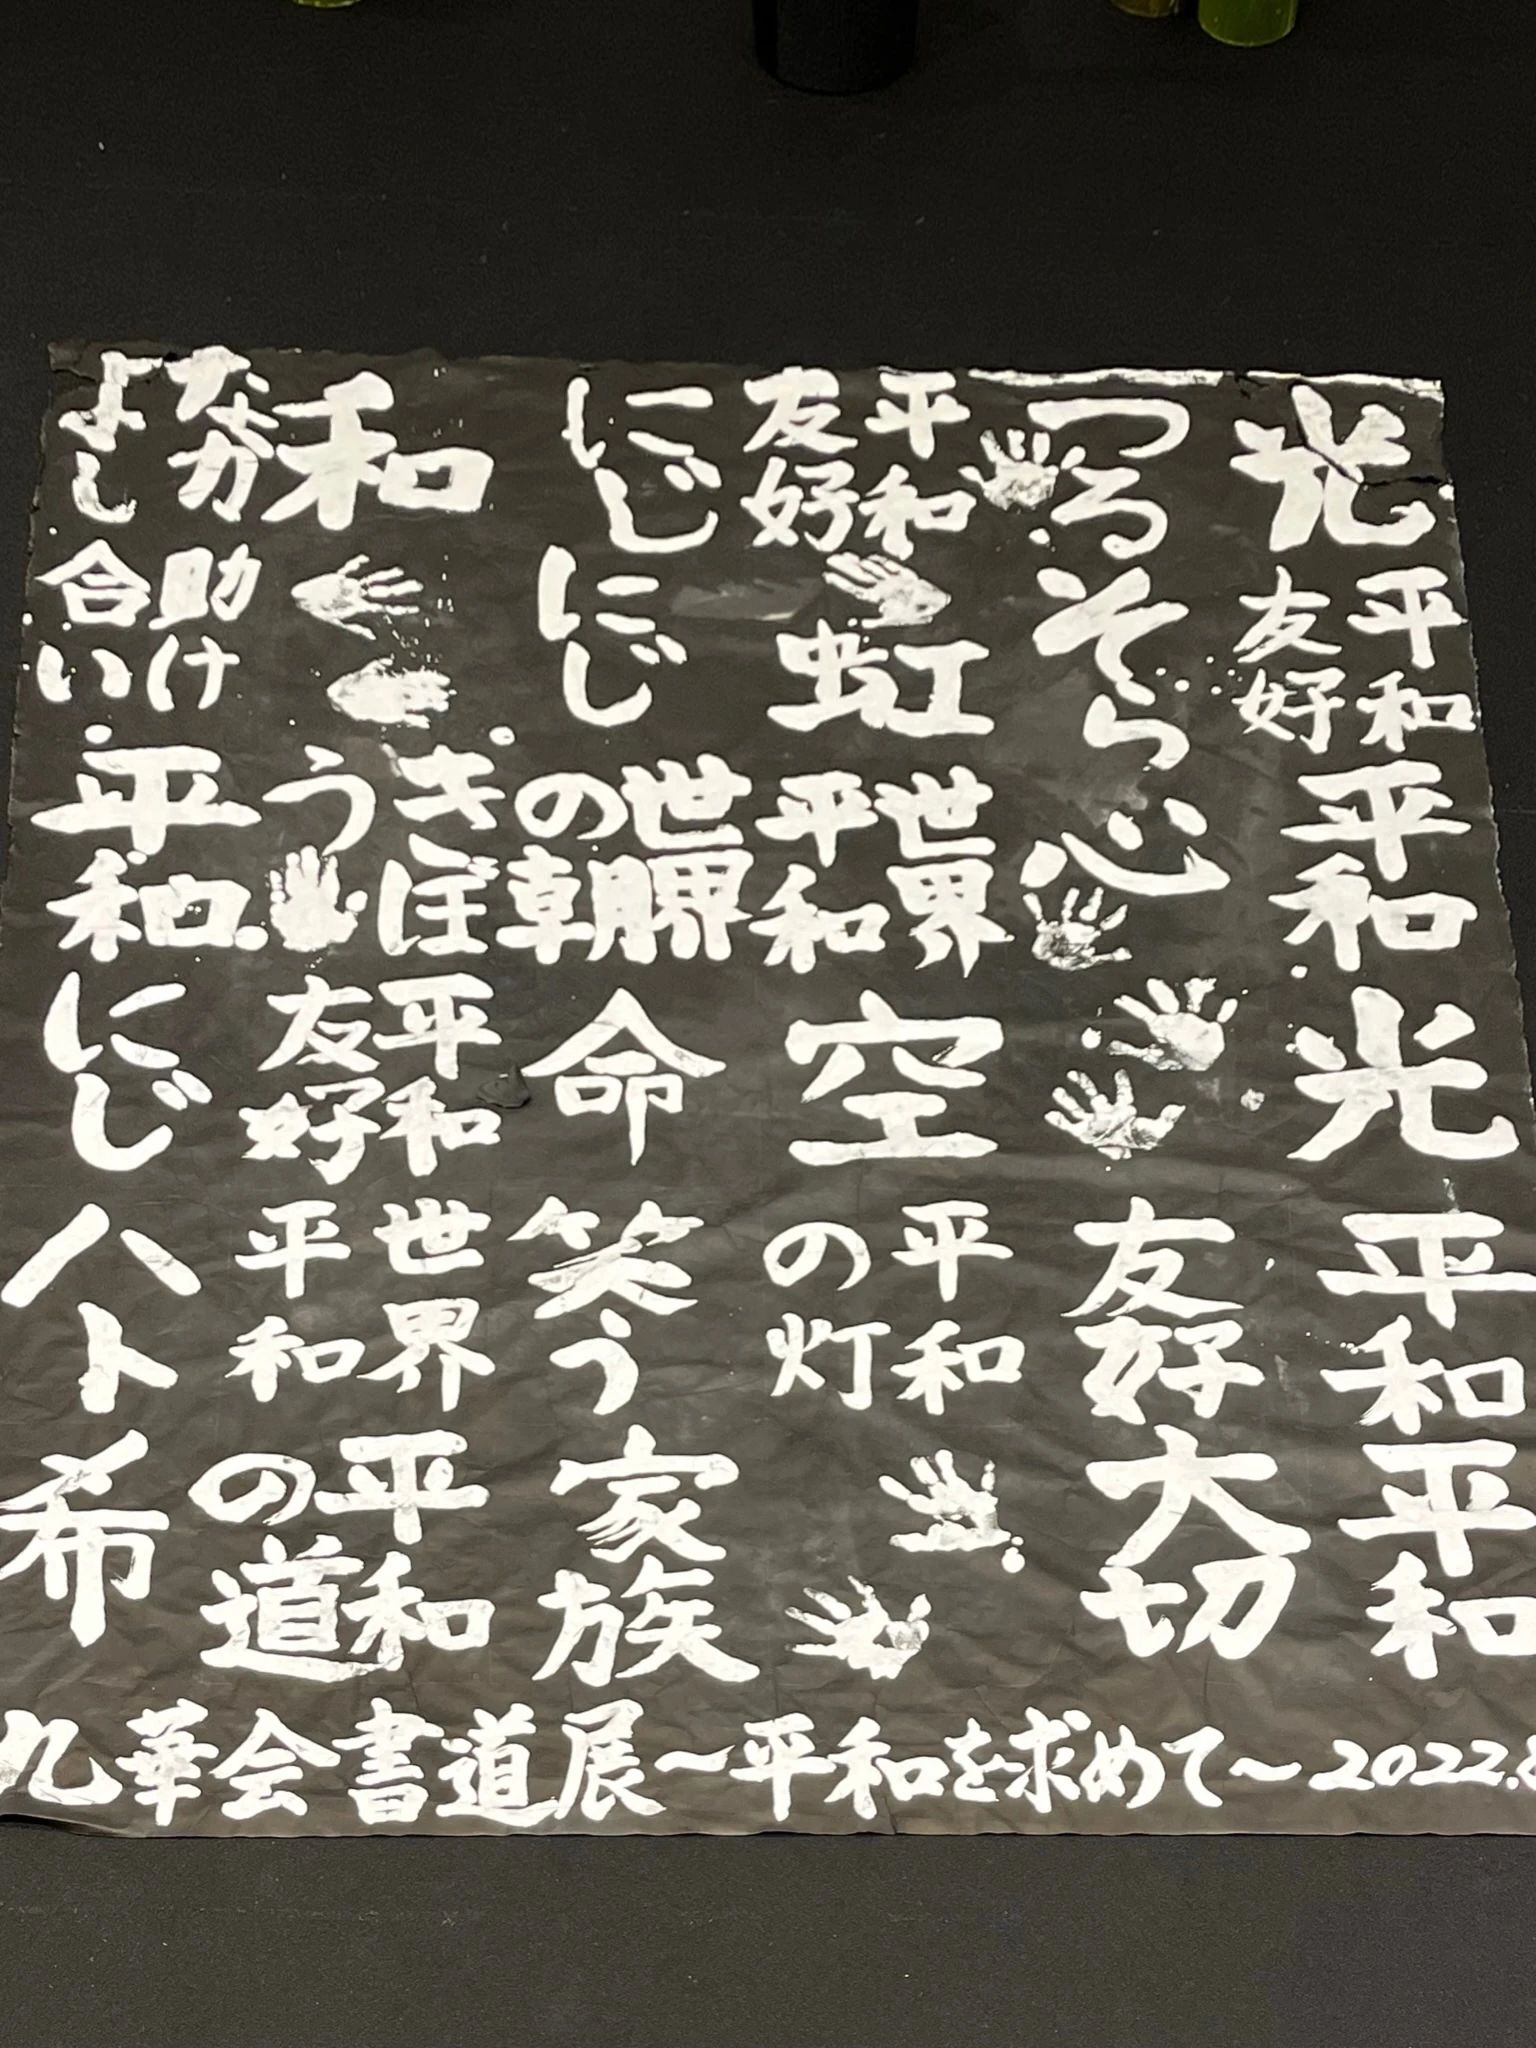 光
平和
友好
平和
光
平和
平和
つる
そら
心
友好
大切
平和
友好
虹
世界
平和
空
平和
の灯
にじ
にじ
世界
の朝
命
笑う
家族
和
きぼ
う
平和
友好
世界
平和
平和
の道
なか
よし
助け
合い
平和
にじ
ハト
希
九華会書道展〜平和を求めて〜2022.8